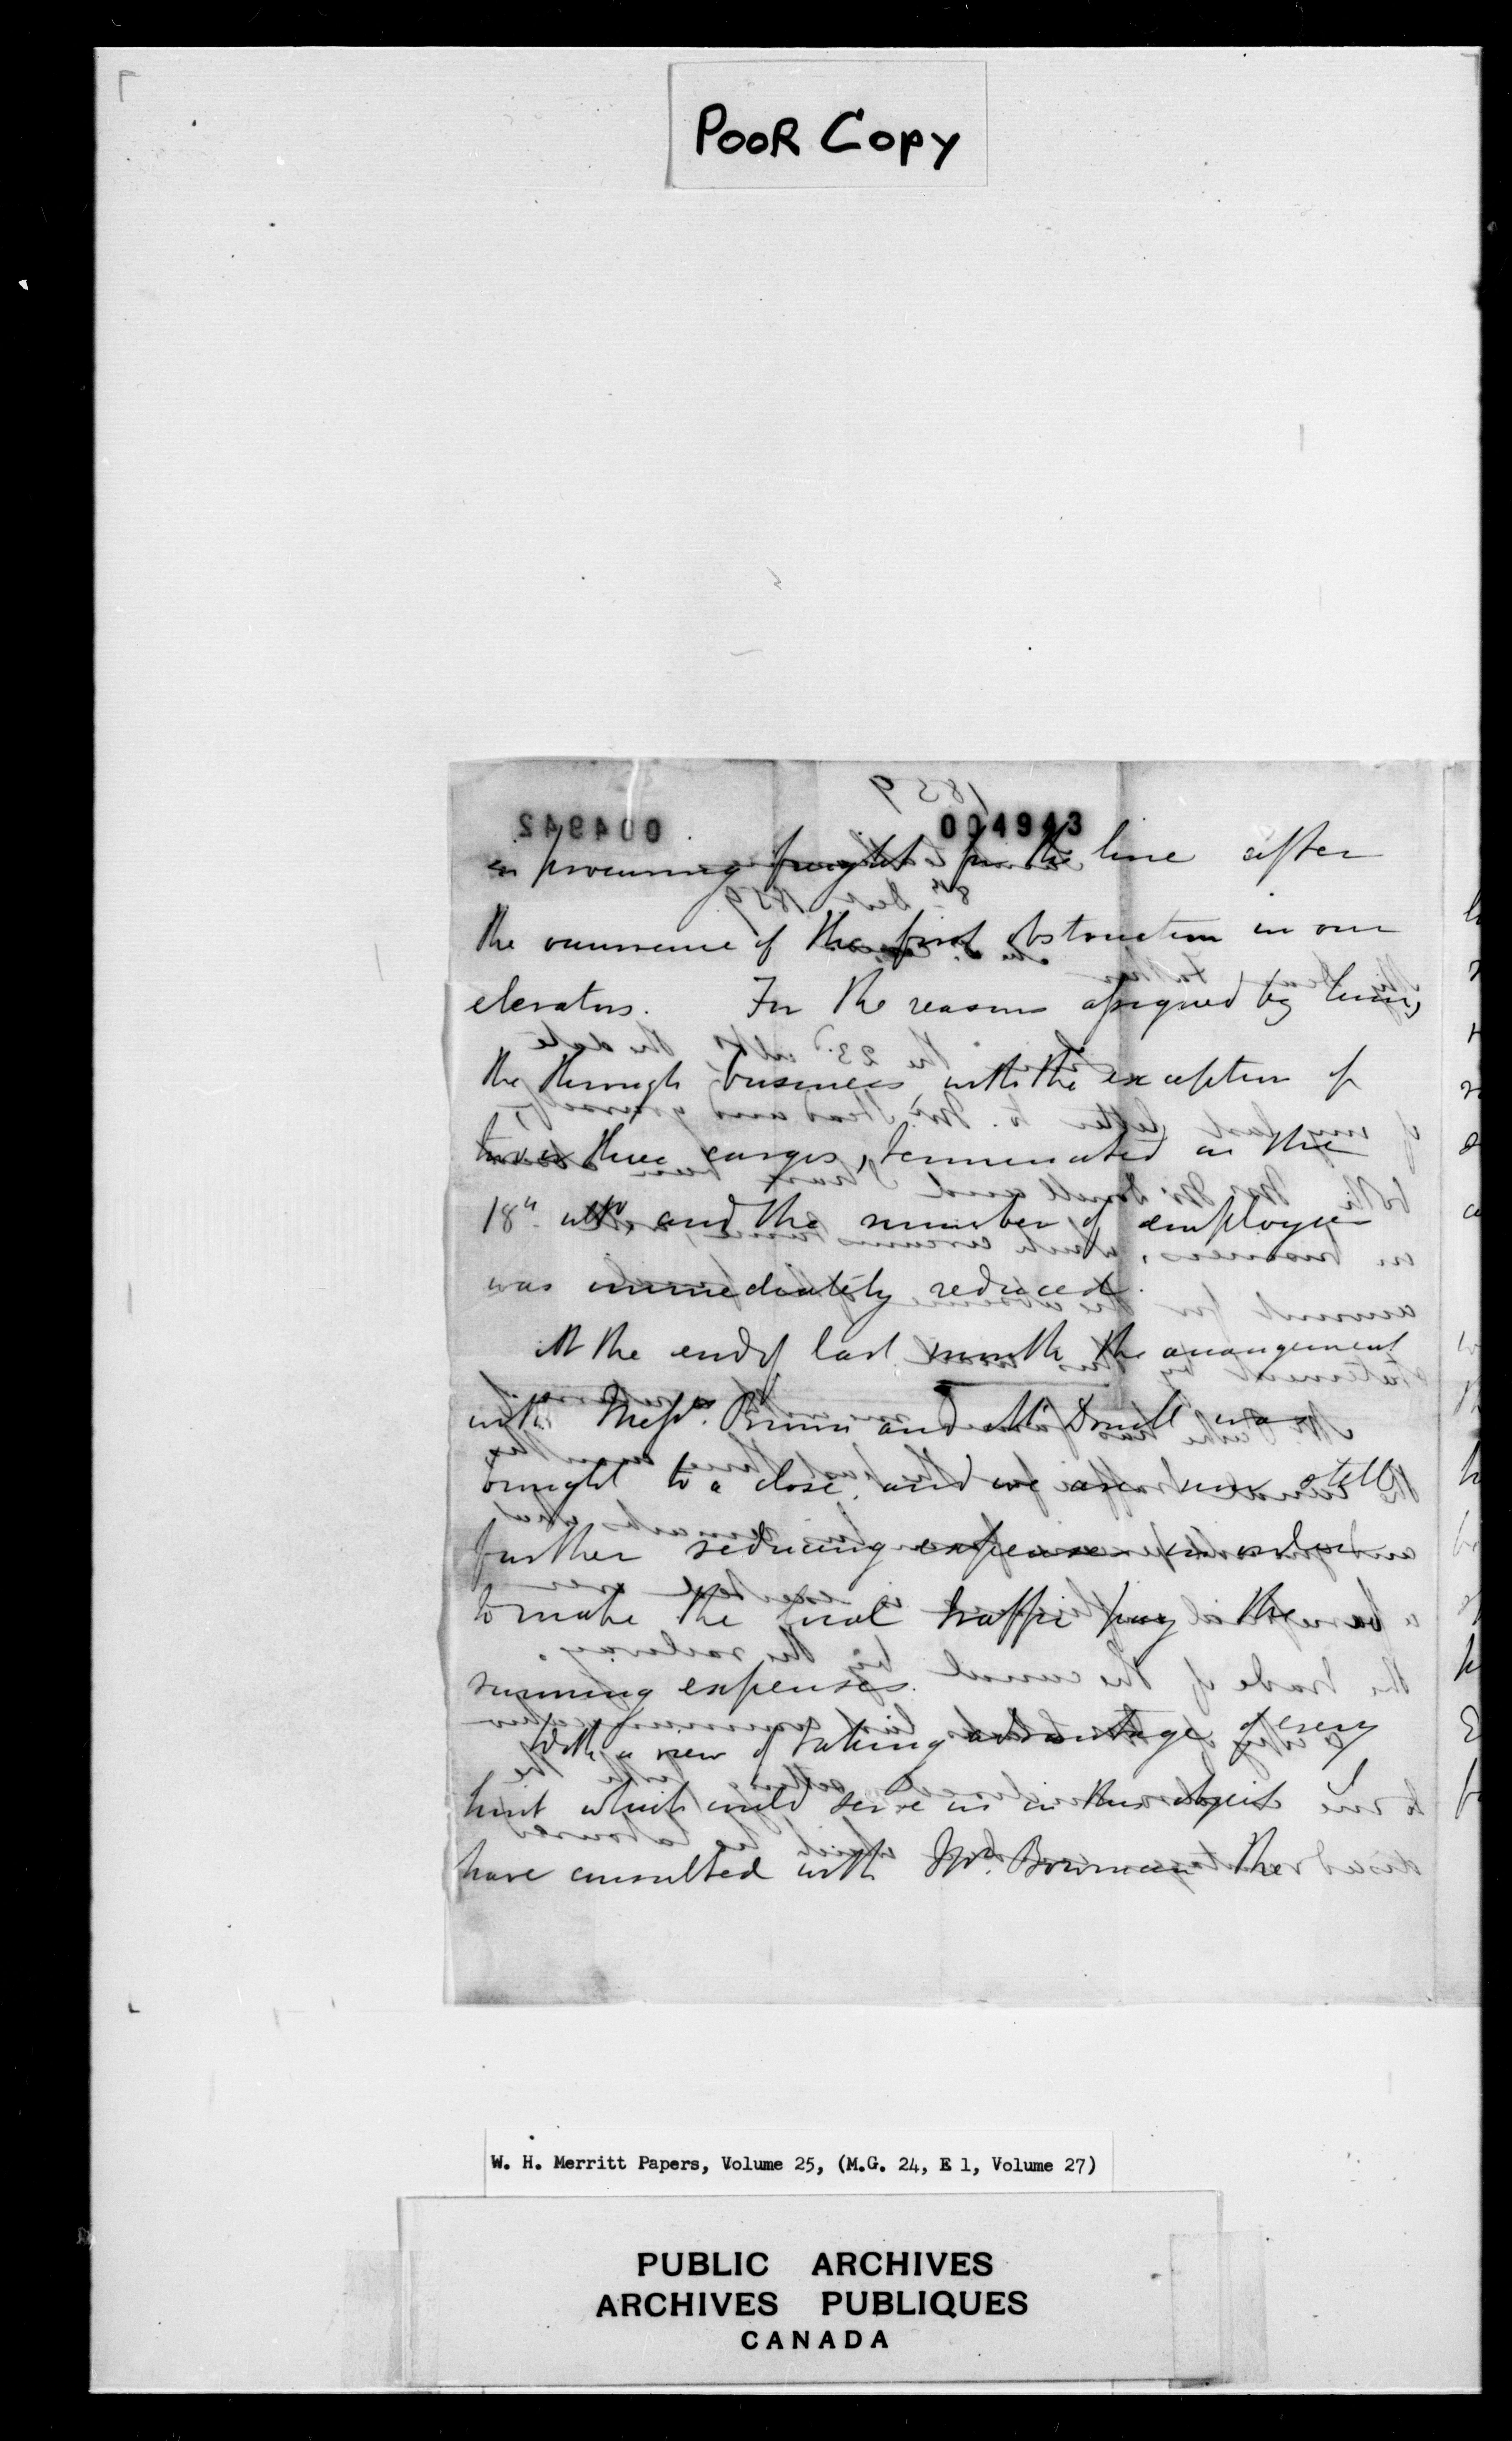 POOR COPY
004943
in procuring freight for the line after
the occurrence of the first obstruction in our
elevators. For the reasons assigned by him,
the through business with the exception of
two or three cargoes, terminated on the
18th ulto and the number of employees
was immediately reduced.
At the end of last month the arrangement
with Messrs. Brown and McDonell was
brought to a close, and we are now still
further reducing expenses in order
to make the local traffic pay the
running expenses.
With a view of taking advantage of every
hint which could serve us in this object I
have consulted with Mr. Bowman the
W. H. Merritt Papers, Volume 25, (M.G. 24, E 1, Volume 27)
PUBLIC ARCHIVES
ARCHIVES PUBLIQUES
CANADA